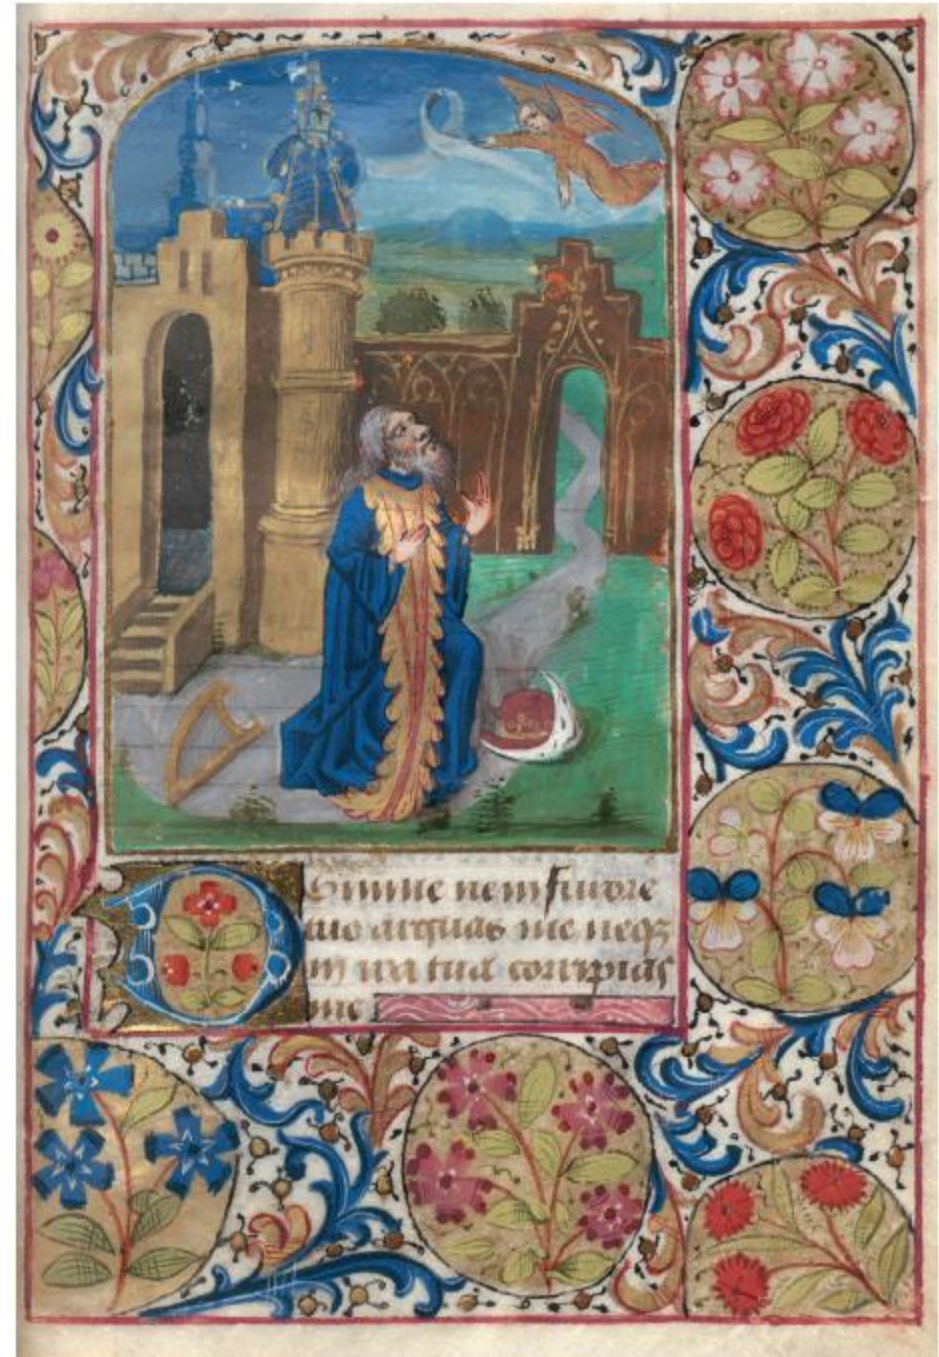 Domine ne in furore
tuo arguas me neqz
in ira tua corripias
me